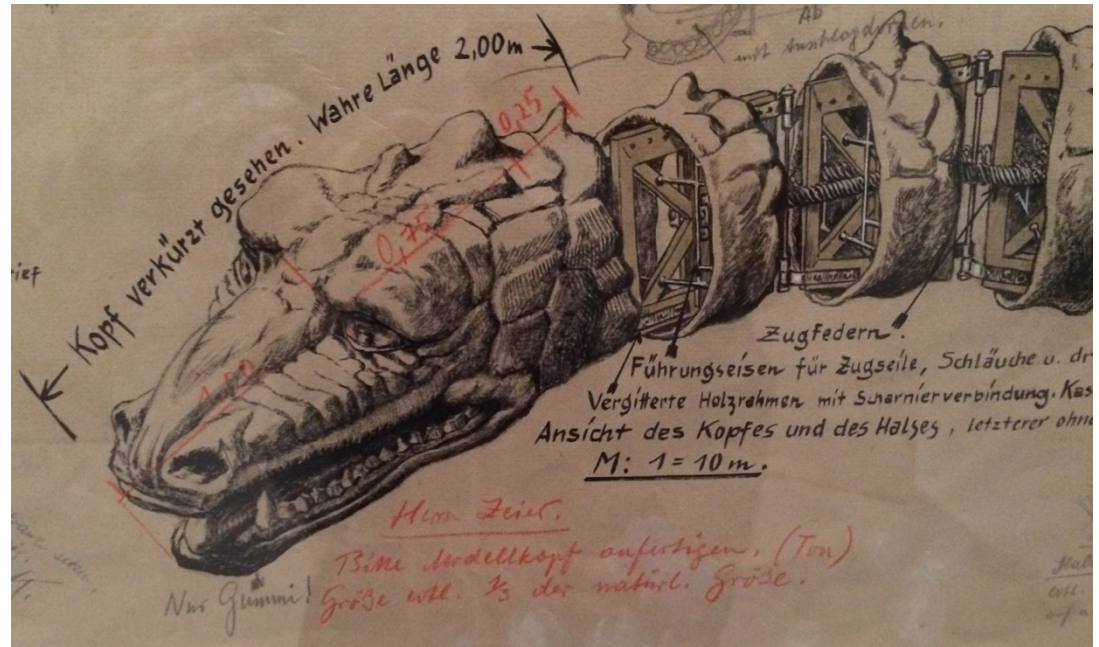 Ab
mit Anschlagdornen.
Kopf verkürzt gesehen. Wahre Länge 2,00m
0,25
0,75
1,00
ief
Zugfedern.
Führungseisen für Zugseile, Schläuche u. dr
Vergitterte Holzrahmen mit Scharnierverbindung. Kas
Ansicht des Kopfes und des Halses, letzterer ohne
M: 1 = 10 m.
Herrn Zeier.
Bitte Modellkopf anfertigen. (Ton)
Größe evtl. 1/3 der natürl. Größe.
Nur Gummi!